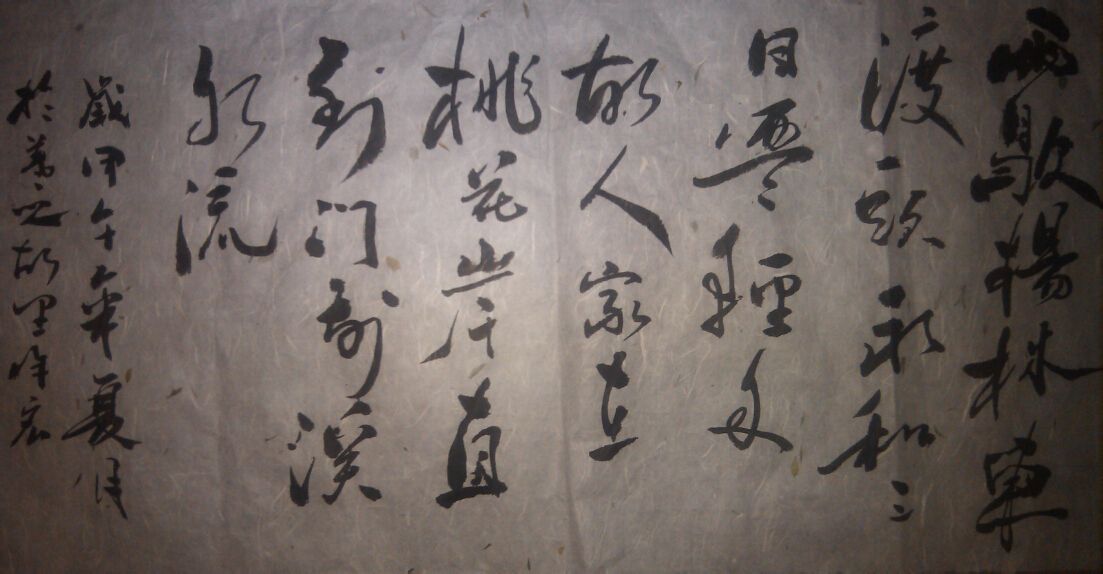 雨歇楊林東
渡頭永和三
日盪輕舟
故人家在
桃花岸直
到门前溪
水流
歲甲午年夏月
於羲之故里